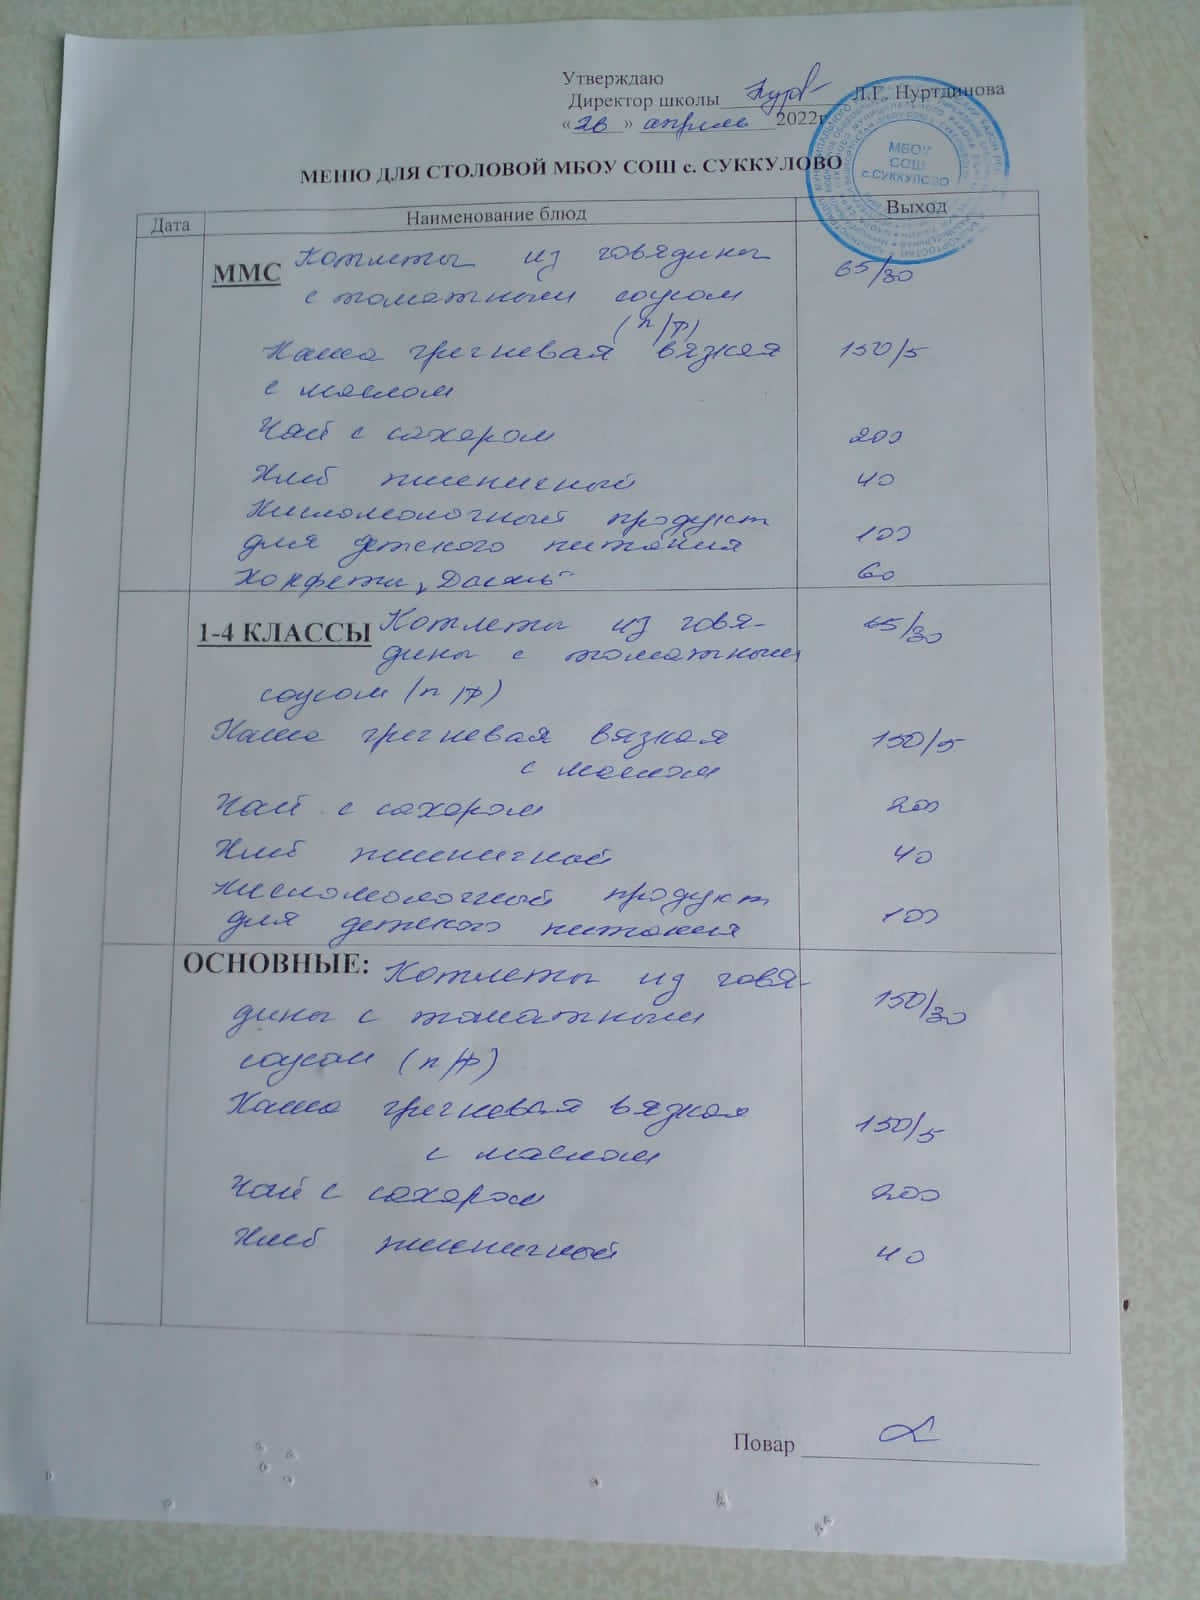 Утверждаю
Директор школы Л.Г. Нуртдинова
«26» апрель 2022г
МБОУ
СОШ
с.СУККУЛОВО
МЕНЮ ДЛЯ СТОЛОВОЙ МБОУ СОШ с. СУККУЛОВО
Дата Наименование блюд Выход
ММС Котлеты из говядины 65/30
с томатным соусом
(п/ф)
Каша гречневая вязкая 150/5
с маслом
Чай с сахаром 200
Хлеб пшеничный 40
Кисломолочный продукт
для детского питания 100
Конфеты 60
1-4 КЛАССЫ Котлеты из говя- 65/30
дины с томатным
соусом (п/ф)
Каша гречневая вязкая 150/5
с маслом
Чай с сахаром 200
Хлеб пшеничный 40
Кисломолочный продукт
для детского питания 100
ОСНОВНЫЕ: Котлеты из говя- 150/30
дины с томатным
соусом (п/ф)
Каша гречневая вязкая 150/5
с маслом
Чай с сахаром 200
Хлеб пшеничный 40
Повар